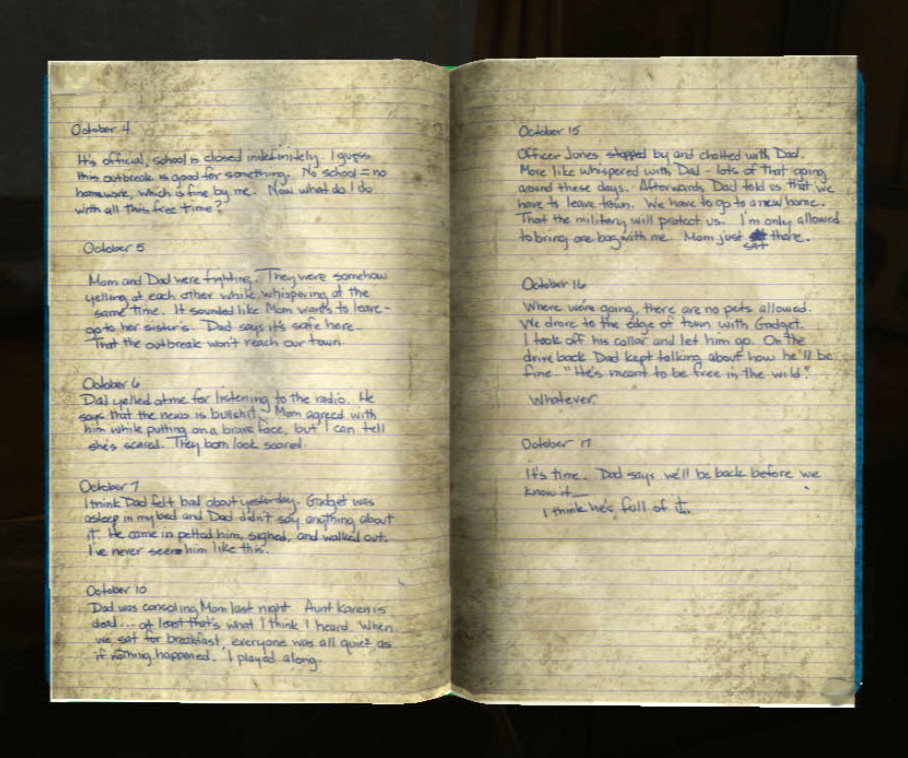 October 4
It's official, school is closed indefinitely. I guess
this outbreak is good for something. No school = no
homework, which is fine by me. Now what do I do
with all this free time?
October 5
Mom and Dad were fighting. They were somehow
yelling at each other while whispering at the
same time. It sounded like Mom wants to leave-
go to her sister's. Dad says it's safe here.
That the outbreak won't reach our town.
October 6
Dad yelled at me for listening to the radio. He
says that the news is bullshit. Mom agreed with
him while putting on a brave face, but I can tell
she's scared. They both look scared.
October 7
I think Dad felt bad about yesterday. Gadget was
asleep in my bed and Dad didn't say anything about
it. He came in petted him, sighed, and walked out.
I've never seen him like this.
October 10
Dad was consoling Mom last night. Aunt Karen is
dead... at least that's what I think I heard. When
we sat for breakfast, everyone was all quiet as
if nothing happened. I played along.
October 15
Officer Jones stopped by and chatted with Dad.
More like whispered with Dad - lots of that going
around these days. Afterwards, Dad told us that we
have to leave town. We have to go to a new home.
That the military will protect us. I'm only allowed
to bring one bag with me. Mom just sat there.
October 16
Where we're going, there are no pets allowed.
We drove to the edge of town with Gadget.
I took off his collar and let him go. On the
drive back Dad kept talking about how he'll be
fine. "He's meant to be free in the wild."
Whatever.
October 17
It's time. Dad says we'll be back before we
know it
I think he's full of it.